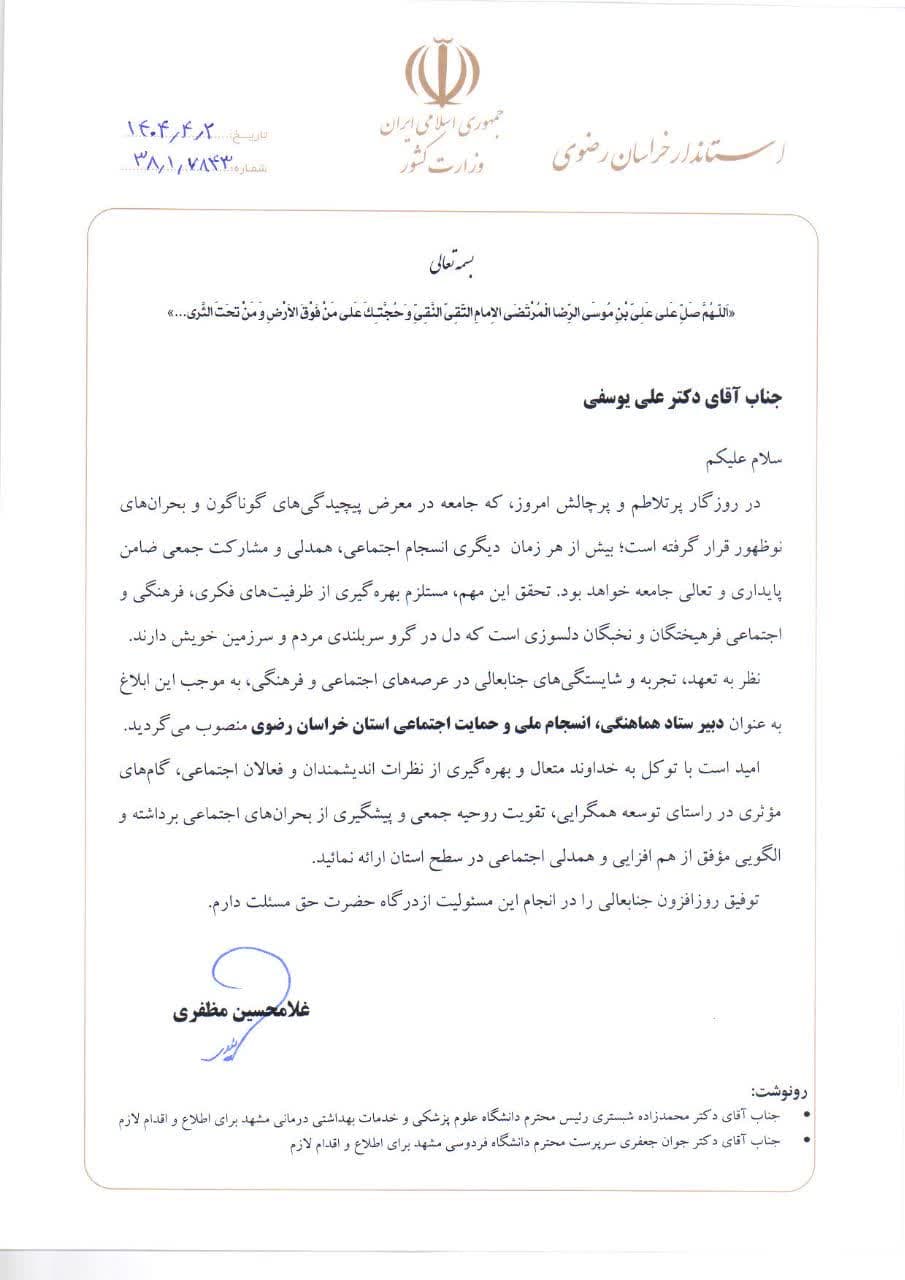 جمهوری اسلامی ایران
وزارت کشور
استاندار خراسان رضوی
تاریخ: ۱۴۰۴٫۴٫۲
شماره: ۳۸٫۱٫۷۸۴۳
بسمه تعالی
«اَللّهُمَّ صَلِّ عَلى عَلِىِّ بْنِ مُوسَى الرِّضا الْمُرْتَضَى الاِمامِ التَّقِىِّ النَّقِىِّ وَ حُجَّتِكَ عَلى مَنْ فَوْقَ الاَرْضِ وَ مَنْ تَحْتَ الثَّرى...»
جناب آقای دکتر علی یوسفی
سلام علیکم
در روزگار پرتلاطم و پرچالش امروز، که جامعه در معرض پیچیدگی‌های گوناگون و بحران‌های
نوظهور قرار گرفته است؛ بیش از هر زمان دیگری انسجام اجتماعی، همدلی و مشارکت جمعی ضامن
پایداری و تعالی جامعه خواهد بود. تحقق این مهم، مستلزم بهره‌گیری از ظرفیت‌های فکری، فرهنگی و
اجتماعی فرهیختگان و نخبگان دلسوزی است که دل در گرو سربلندی مردم و سرزمین خویش دارند.
نظر به تعهد، تجربه و شایستگی‌های جنابعالی در عرصه‌های اجتماعی و فرهنگی، به موجب این ابلاغ
به عنوان دبیر ستاد هماهنگی، انسجام ملی و حمایت اجتماعی استان خراسان رضوی منصوب می‌گردید.
امید است با توکل به خداوند متعال و بهره‌گیری از نظرات اندیشمندان و فعالان اجتماعی، گام‌های
مؤثری در راستای توسعه همگرایی، تقویت روحیه جمعی و پیشگیری از بحران‌های اجتماعی برداشته و
الگویی مؤفق از هم افزایی و همدلی اجتماعی در سطح استان ارائه نمائید.
توفیق روزافزون جنابعالی را در انجام این مسئولیت ازدرگاه حضرت حق مسئلت دارم.
غلامحسین مظفری
رونوشت:
• جناب آقای دکتر محمدزاده شبستری رئیس محترم دانشگاه علوم پزشکی و خدمات بهداشتی درمانی مشهد برای اطلاع و اقدام لازم
• جناب آقای دکتر جوان جعفری سرپرست محترم دانشگاه فردوسی مشهد برای اطلاع و اقدام لازم